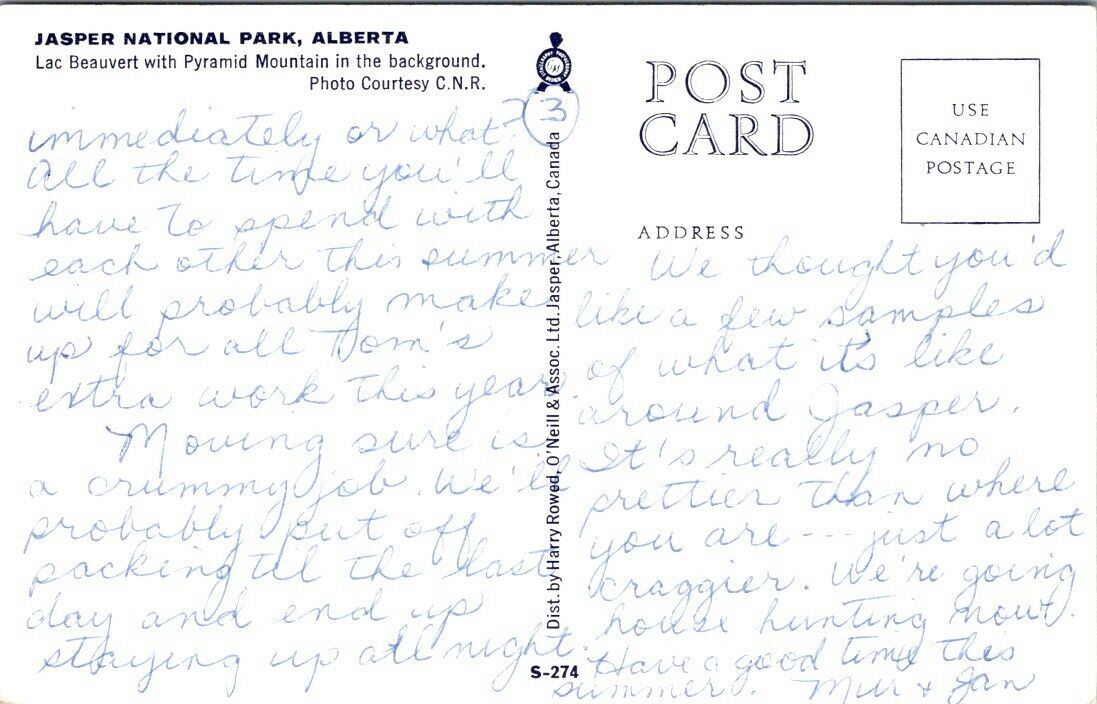 JASPER NATIONAL PARK, ALBERTA
Lac Beauvert with Pyramid Mountain in the background.
Photo Courtesy C.N.R.
3
immediately or what?
All the time you'll
have to spend with
each other this summer
will probably make
up for all Tom's
extra work this year.
Moving sure is
a crummy job. We'll
probably put off
packing til the last
day and end up
staying up all night.
Dist. by Harry Rowed, O'Neill & Assoc. Ltd. Jasper, Alberta, Canada
S-274
POST
CARD
USE
CANADIAN
POSTAGE
ADDRESS
We thought you'd
like a few samples
of what it's like
around Jasper.
It's really no
prettier than where
you are --- just a lot
craggier. We're going
house hunting now.
Have a good time this
summer. Mur + Jan